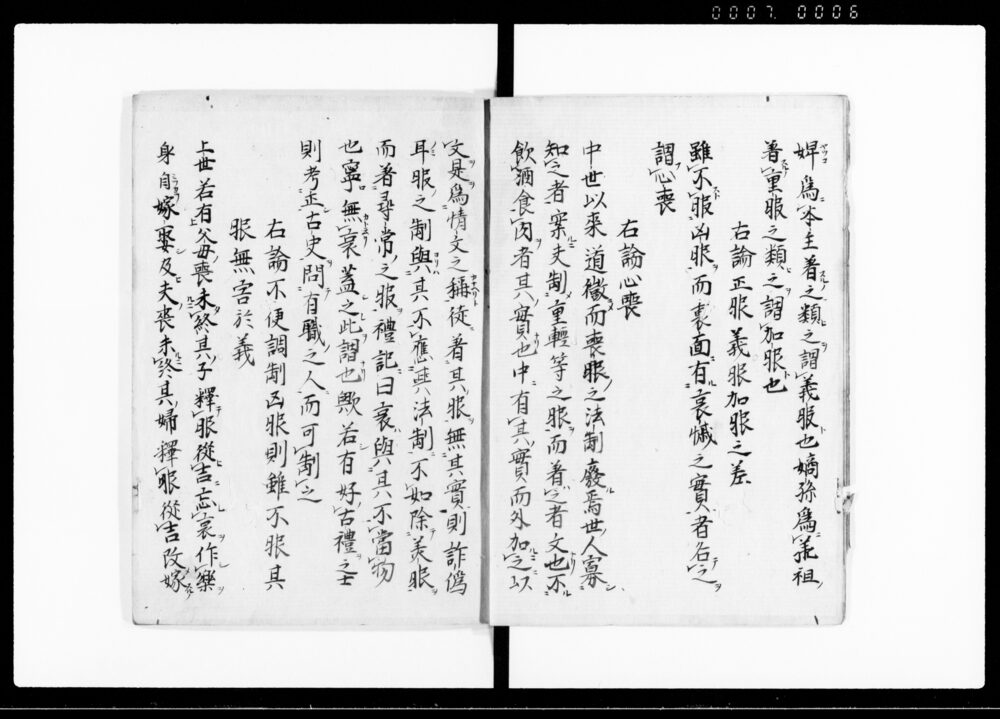 0007 0006
婢爲本主著之類之謂義服也嫡孫爲祖
著重服之類之謂加服也
右論正服義服加服之差
雖不服凶服而裏面有哀慽之實者名之
謂心喪
右論心喪
中世以來道微而喪服之法制廢焉世人寡
知之者案夫制重輕等之服而著之者文也不
飲酒食肉者其實也中有其實而外加之以
文是爲情文之稱徒著其服無其實則詐僞
耳服之制與其不應其法制不如除美服
而著尋常之服禮記曰衰與其不當物
也寧無衰蓋之此謂也歟若有好古禮之士
則考正古史問有職之人而可制之
右論不便調制凶服則雖不服其
服無害於義
上世若有父母喪未終其子釋服從吉忘哀作樂
身自嫁娶及夫喪未終其婦釋服從吉改嫁